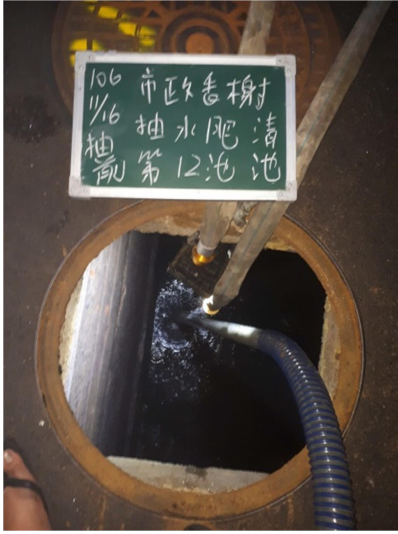 106 市政香榭
11/16 抽水肥清
抽前 第12池池